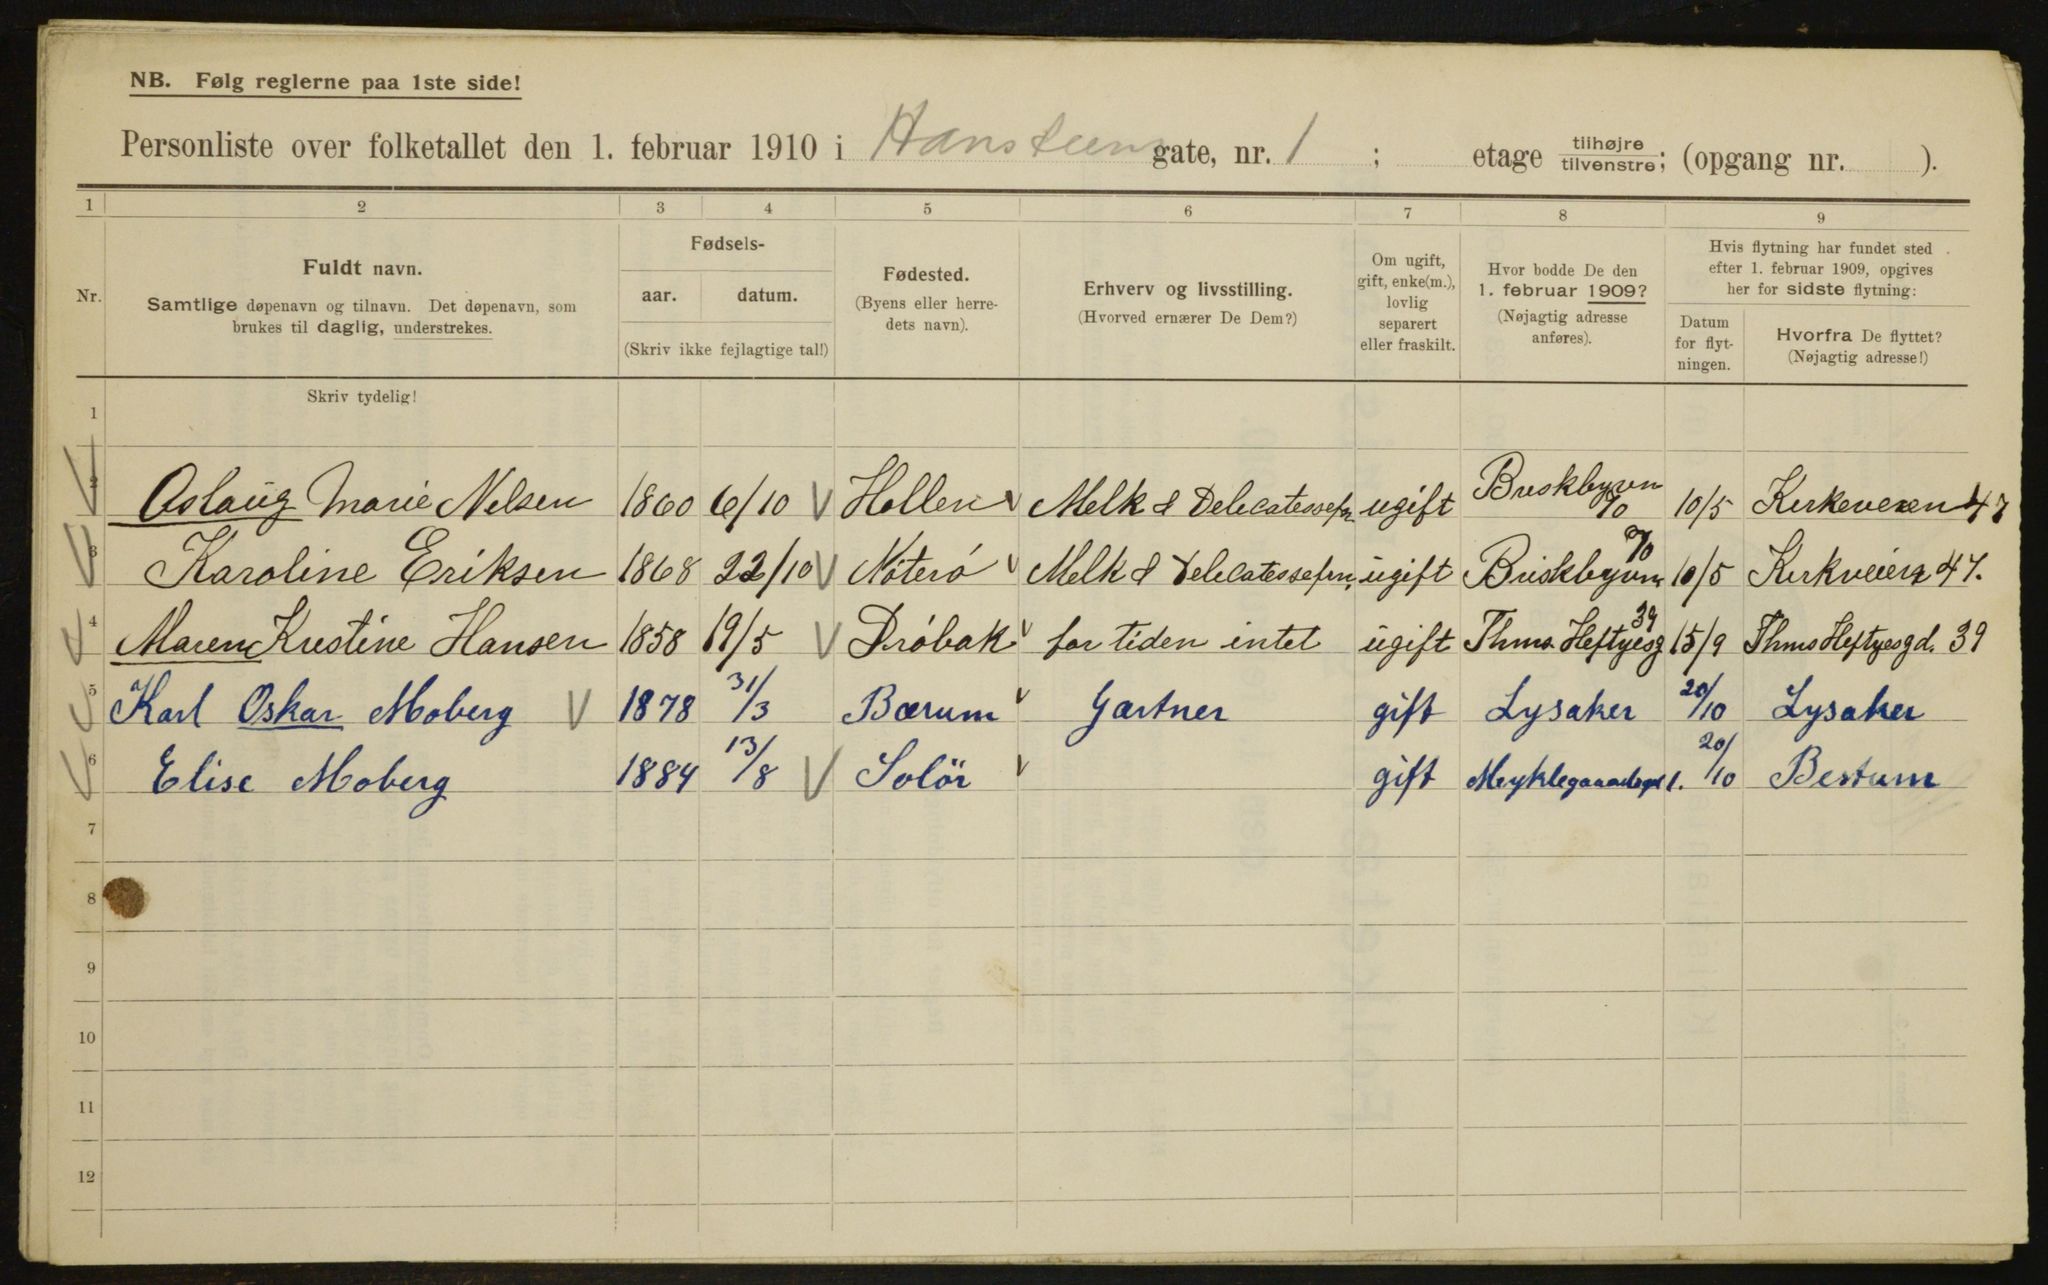 NB. Følg reglerne paa 1ste side!
Personliste over folketallet den 1. februar 1910 i Hansteens gate, nr. 1 ; etage tilhøjre tilvenstre; (opgang nr. ).
1 2 3 4 5 6 7 8 9
Nr.
Fuldt navn.
Samtlige døpenavn og tilnavn. Det døpenavn, som
brukes til daglig, understrekes.
Fødsels-
aar. datum.
(Skriv ikke fejlagtige tal!)
Fødested.
(Byens eller herre-
dets navn).
Erhverv og livsstilling.
(Hvorved ernærer De Dem?)
Om ugift,
gift, enke(m.),
lovlig
separert
eller fraskilt.
Hvor bodde De den
1. februar 1909?
(Nøjagtig adresse
anføres).
Hvis flytning har fundet sted
efter 1. februar 1909, opgives
her for sidste flytning:
Datum
for flyt-
ningen.
Hvorfra De flyttet?
(Nøjagtig adresse!)
Skriv tydelig!
1
2 Aslaug Marie Nelsen 1860 6/10 Hollen Melk & Delicatessefn ugift Briskbyvn 10/5 Kerkeveien 47
3 Karoline Eriksen 1868 22/10 Nøterø Melk & Delecatessefrn. ugift Briskbyvn 10/5 Kirkveien 47.
4 Maren Kristine Hansen 1858 19/5 Drøbak for tiden intet ugift Thms Heftyesg 39 15/9 Thms Heftyesgd. 39
5 Karl Oskar Moberg 1878 31/3 Bærum Gartner gift Lysaker 20/10 Lysaker
6 Elise Moberg 1884 13/8 Solør gift 1. 20/10 Bestum
7
8
9
10
11
12